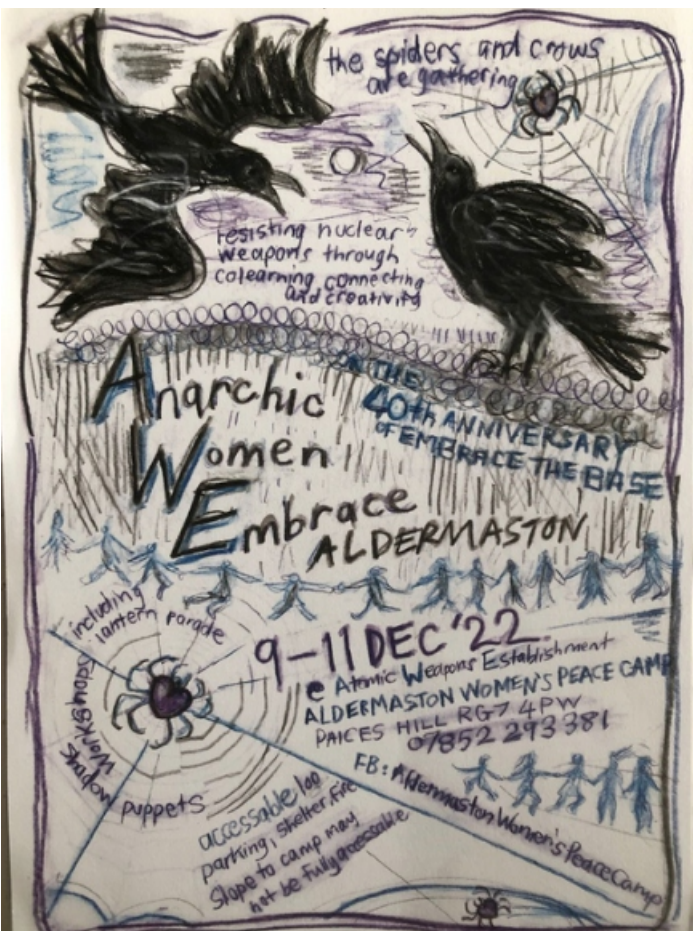 the spiders and crows
are gathering
resisting nuclear
weapons through
colearning connecting
and creativity
Anarchic
Women
Embrace
ALDERMASTON
ON THE
40th ANNIVERSARY
of EMBRACE THE BASE
including
lantern parade
workshops
puppets
9-11 DEC '22
@ Atomic Weapons Establishment
ALDERMASTON WOMEN'S PEACE CAMP
PAICES HILL RG7 4PW
07852 293381
FB: Aldermaston Women's Peace Camp
accessable loo
parking, shelter, fire
Slope to camp may
not be fully accessable